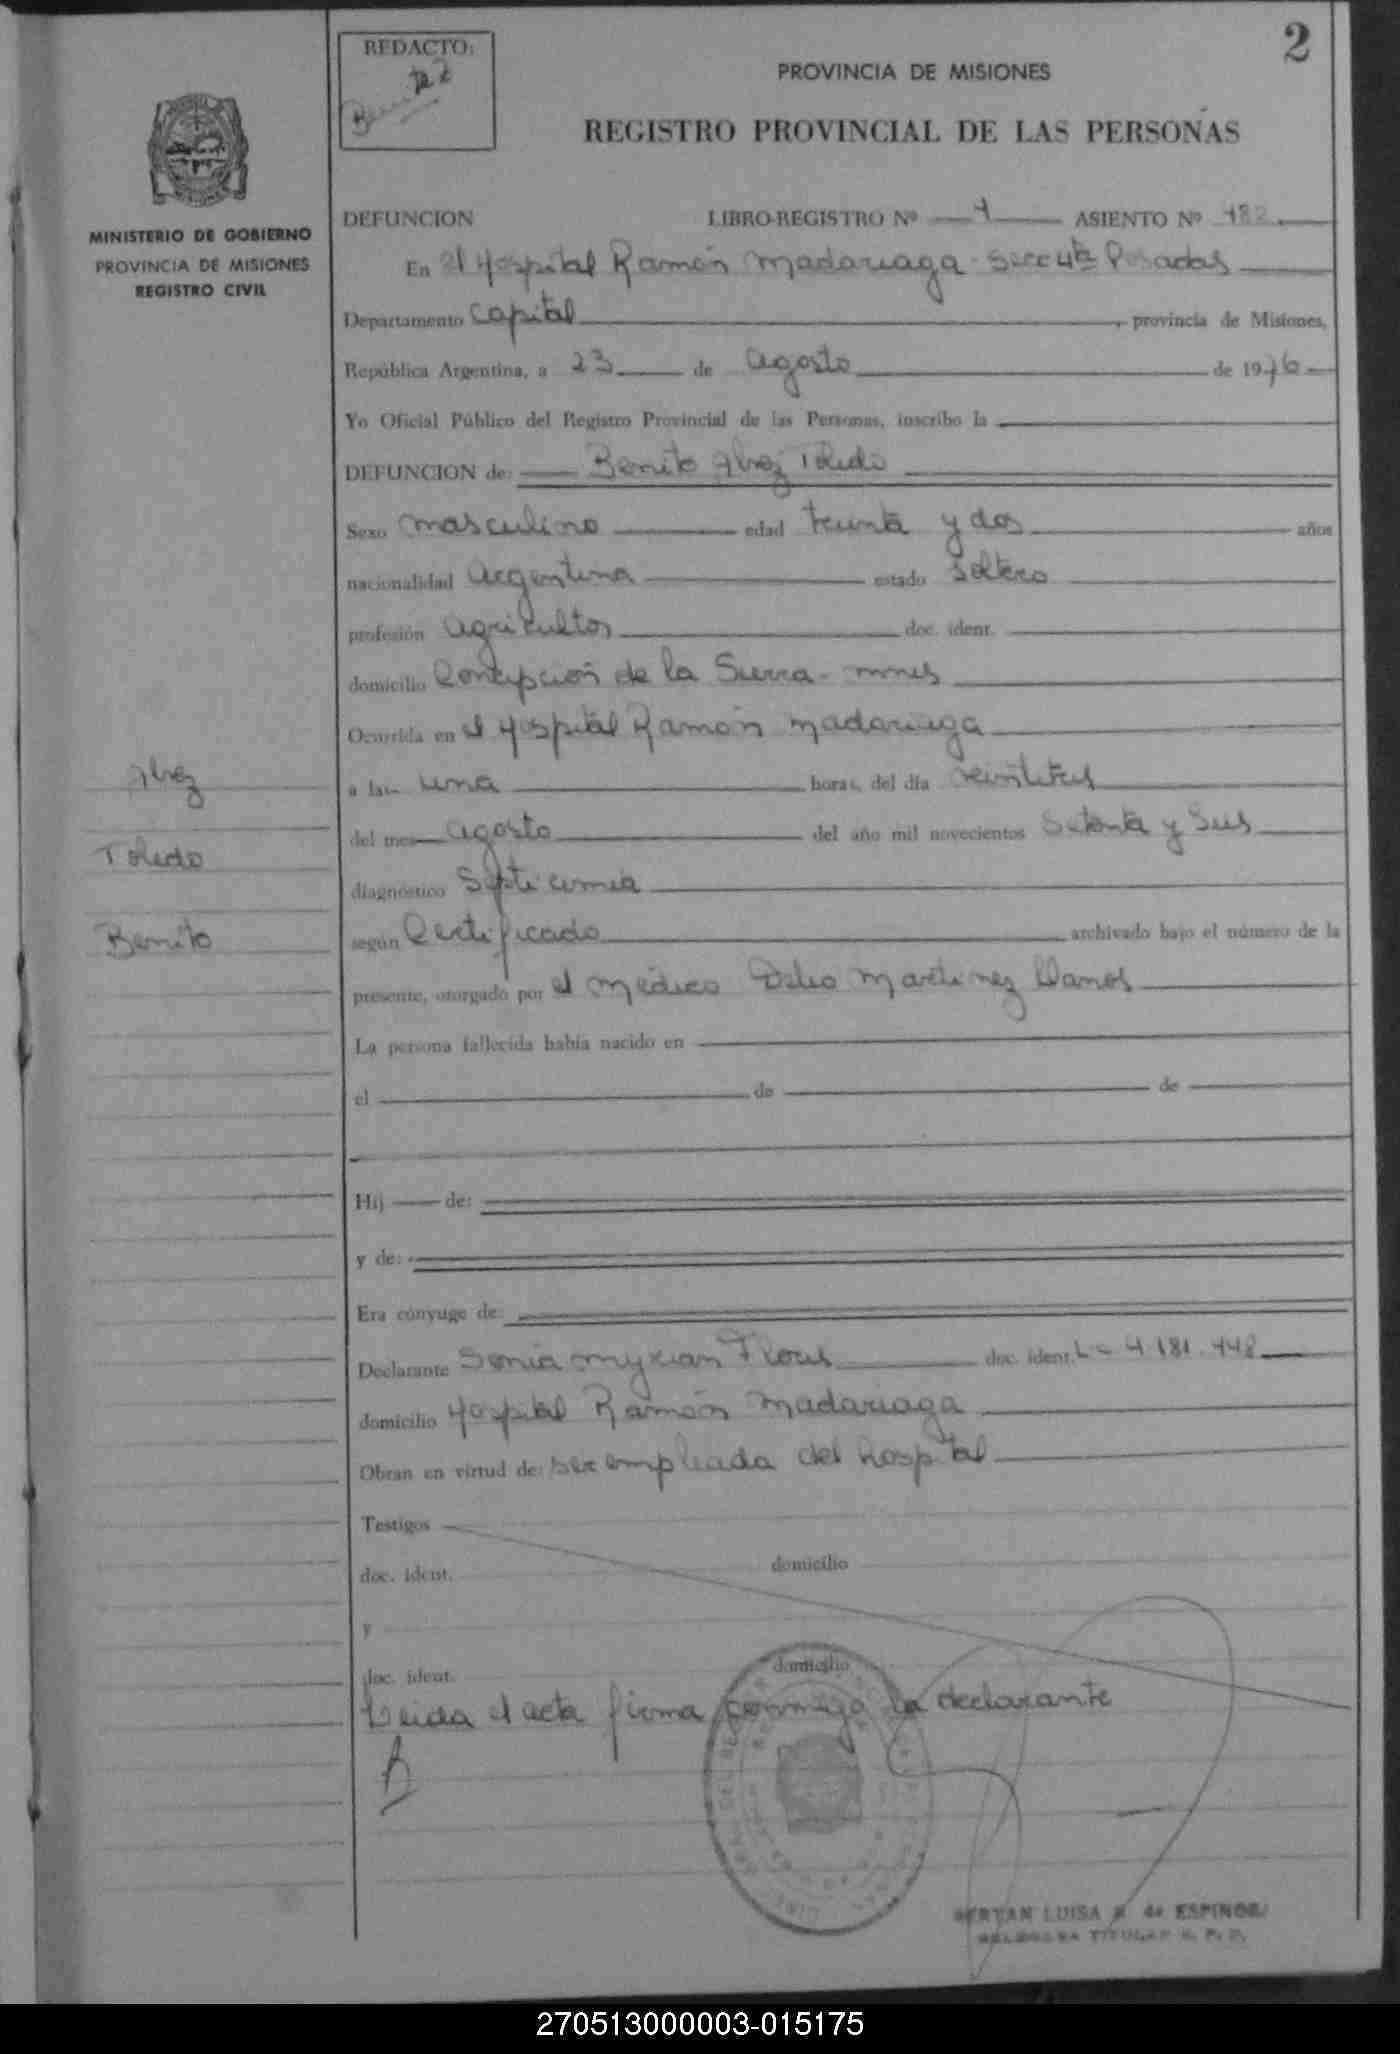 2
REDACTO:
PROVINCIA DE MISIONES
REGISTRO PROVINCIAL DE LAS PERSONAS
MINISTERIO DE GOBIERNO
PROVINCIA DE MISIONES
REGISTRO CIVIL
DEFUNCION LIBRO-REGISTRO Nº ASIENTO Nº 482
En el Hospital Ramón Madariaga - Secc 4ta Posadas
Departamento Capital, provincia de Misiones,
República Argentina, a 23 de agosto de 1976
Yo Oficial Público del Registro Provincial de las Personas, inscribo la
DEFUNCION de: Benito Toledo
Sexo masculino edad treinta y dos años
nacionalidad argentina estado soltero
profesión agricultor doc. ident.
domicilio Concepción de la Sierra - mnes
Ocurrida en el Hospital Ramón Madariaga
a las una horas, del día veintitres
del mes agosto del año mil novecientos setenta y seis
diagnóstico Septicemia
según Certificado archivado bajo el número de la
presente, otorgado por el médico Delio Martinez Llanos
La persona fallecida había nacido en
el de de
Hij de:
y de:
Era cónyuge de:
Declarante Sonia Myrian Flores doc. ident. L C 4.181.448
domicilio Hospital Ramón Madariaga
Obran en virtud de: ser empleada del hospital
Testigos
doc. ident. domicilio
y
doc. ident. domicilio
Leida el acta firma conmigo la declarante
Toledo
Benito
LUISA de ESPINOSA
TITULAR R. P. P.
270513000003-015175